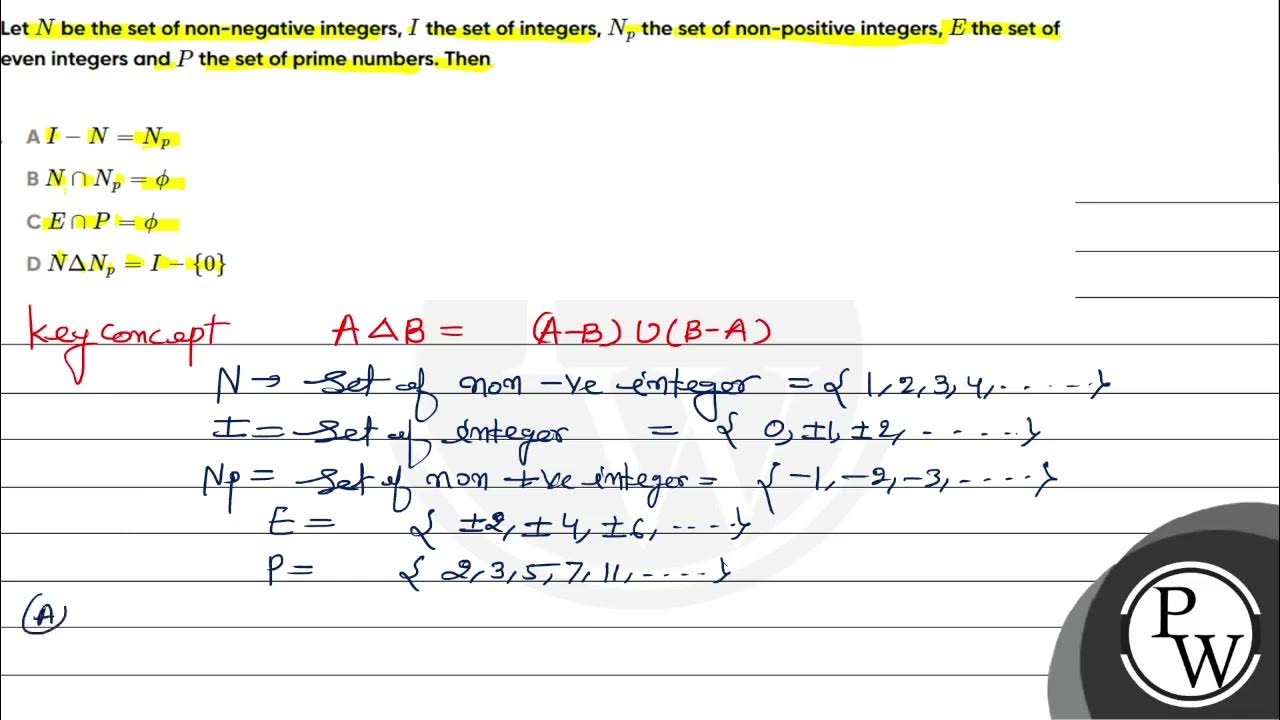 Let N be the set of non-negative integers, I the set of integers, Nₚ the set of non-positive integers, E the set of
even integers and P the set of prime numbers. Then
A I − N = Nₚ
B N ∩ Nₚ = ϕ
C E ∩ P = ϕ
D NΔNₚ = I − {0}
Key concept A △ B = (A-B) ∪ (B-A)
N → Set of non -ve integer = { 1, 2, 3, 4, ..... }
I = Set of integer = { 0, ±1, ±2, ..... }
Np = Set of non +ve integer = { -1, -2, -3, .... }
E = { ±2, ± 4, ± 6, .... }
P = { 2, 3, 5, 7, 11, ..... }
(A)
P
W